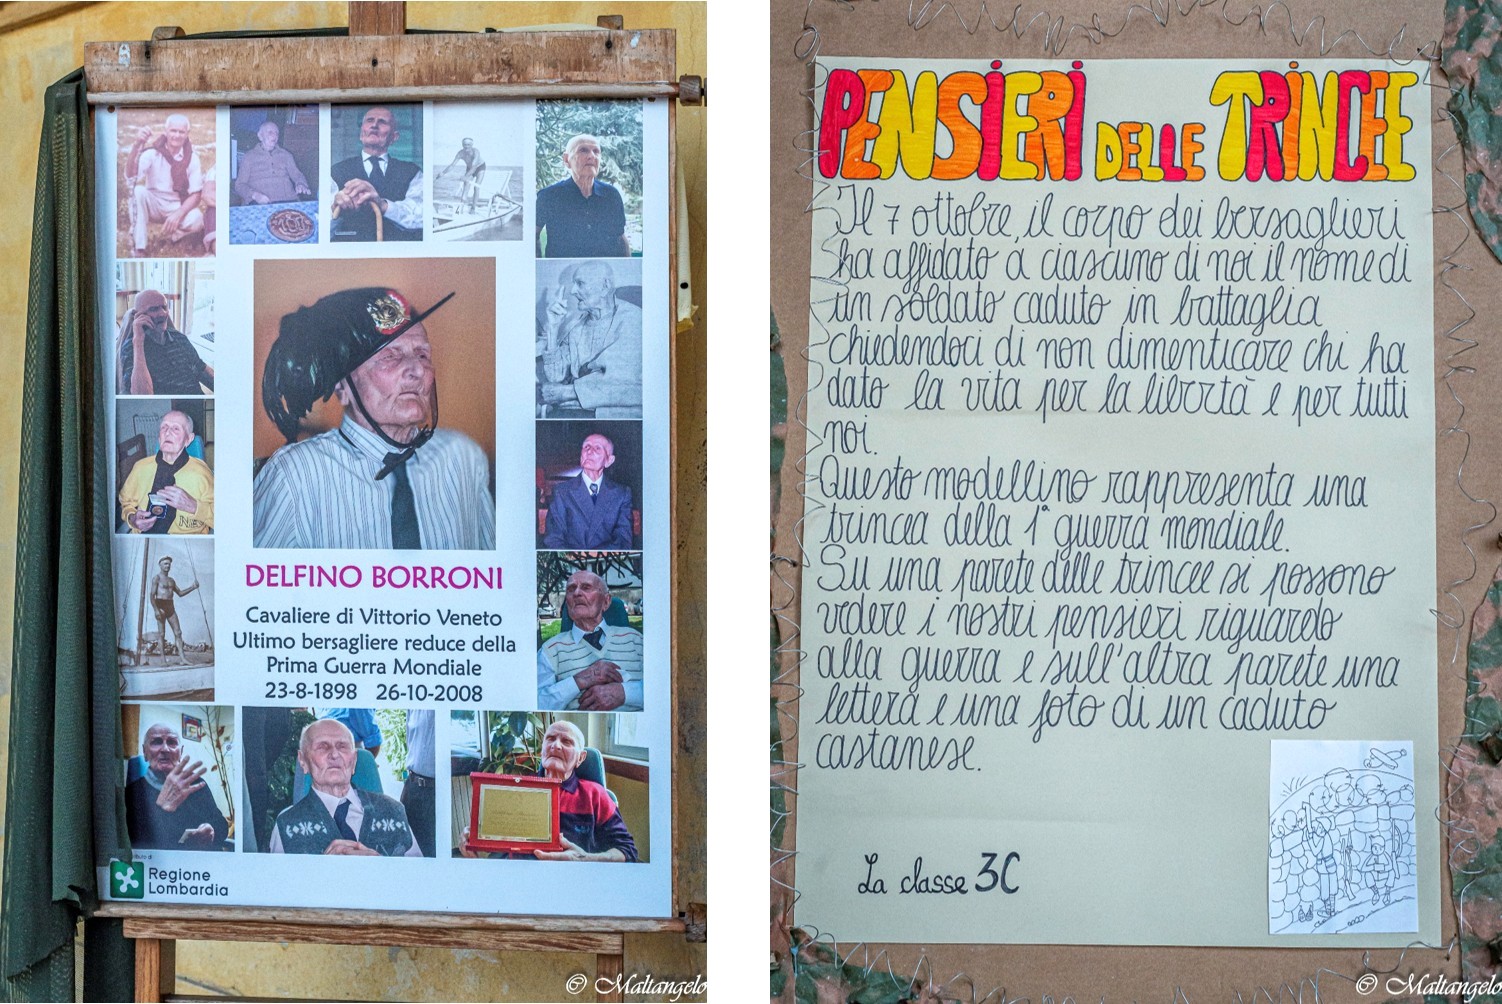 DELFINO BORRONI
Cavaliere di Vittorio Veneto
Ultimo bersagliere reduce della
Prima Guerra Mondiale
23-8-1898 26-10-2008
Regione
Lombardia
© Maltangelo
PENSIERI DELLE TRINCEE
Il 7 ottobre, il corpo dei bersaglieri
ha affidato a ciascuno di noi il nome di
un soldato caduto in battaglia
chiedendoci di non dimenticare chi ha
dato la vita per la libertà e per tutti
noi.
Questo modellino rappresenta una
trincea della 1ª guerra mondiale.
Su una parete delle trincee si possono
vedere i nostri pensieri riguardo
alla guerra e sull'altra parete una
lettera e una foto di un caduto
castanese.
La classe 3C
© Maltangelo